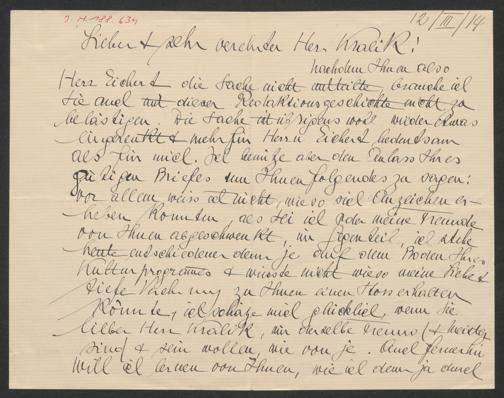 J.N. 188.634
12/III/14
Lieber & sehr verehrter Herr Kralik!
Nachdem Ihnen also
Herr Eichert die Sache nicht mitteilte, brauche ich
Sie auch mit dieser Redaktionsgeschichte nicht zu
belästigen. Die Sache ist übrigens wohl wieder etwas
eingerenkt & mehr für Herrn Eichert bedeutsam
als für mich. Ich benütze aber den Anlass Ihres
gütigen Briefes um Ihnen folgendes zu sagen:
vor allem weiss ich nicht, wieso sich Anzeichen er-
heben konnten, als sei ich oder meine Freunde
von Ihnen abgeschwenkt, im Gegenteil, ich stehe
heute entschiedener denn je auf dem Boden Ihres
Kulturprogrammes & wüsste nicht wieso meine Liebe &
tiefe Verehrung zu Ihnen einen Stoss erhalten
könnte, ich schätze mich glücklich, wenn Sie
lieber Herr Kralik, mir derselbe
sind & sein wollen, wie von je. Auch fernerhin
will ich lernen von Ihnen, wie ich denn ja durch